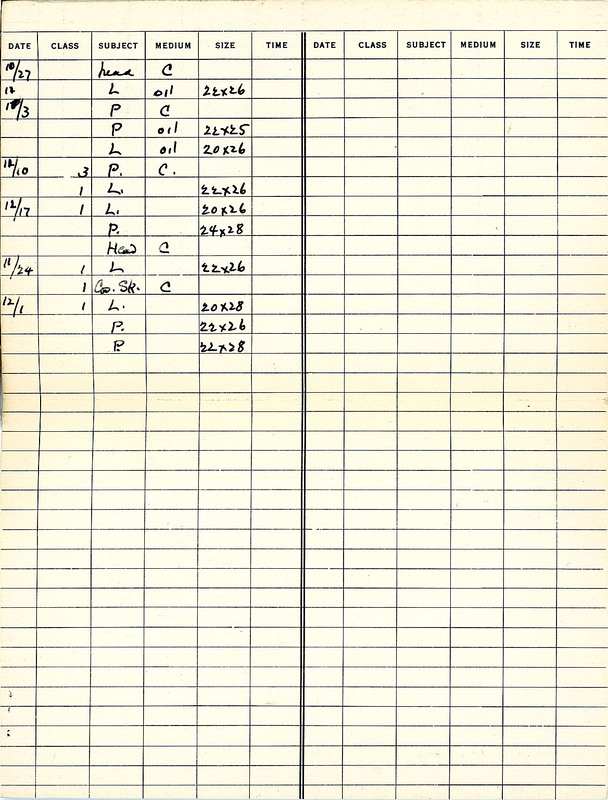 DATE CLASS SUBJECT MEDIUM SIZE TIME DATE CLASS SUBJECT MEDIUM SIZE TIME
10/27 head C
L oil 22x26
/3 P C
P oil 22x25
L oil 20x26
/10 3 P. C.
1 L. 22x26
12/17 1 L. 20x26
P. 24x28
Head C
11/24 1 L 22x26
1 Co. Sk. C
12/1 1 L. 20x28
P. 22x26
P. 22x28